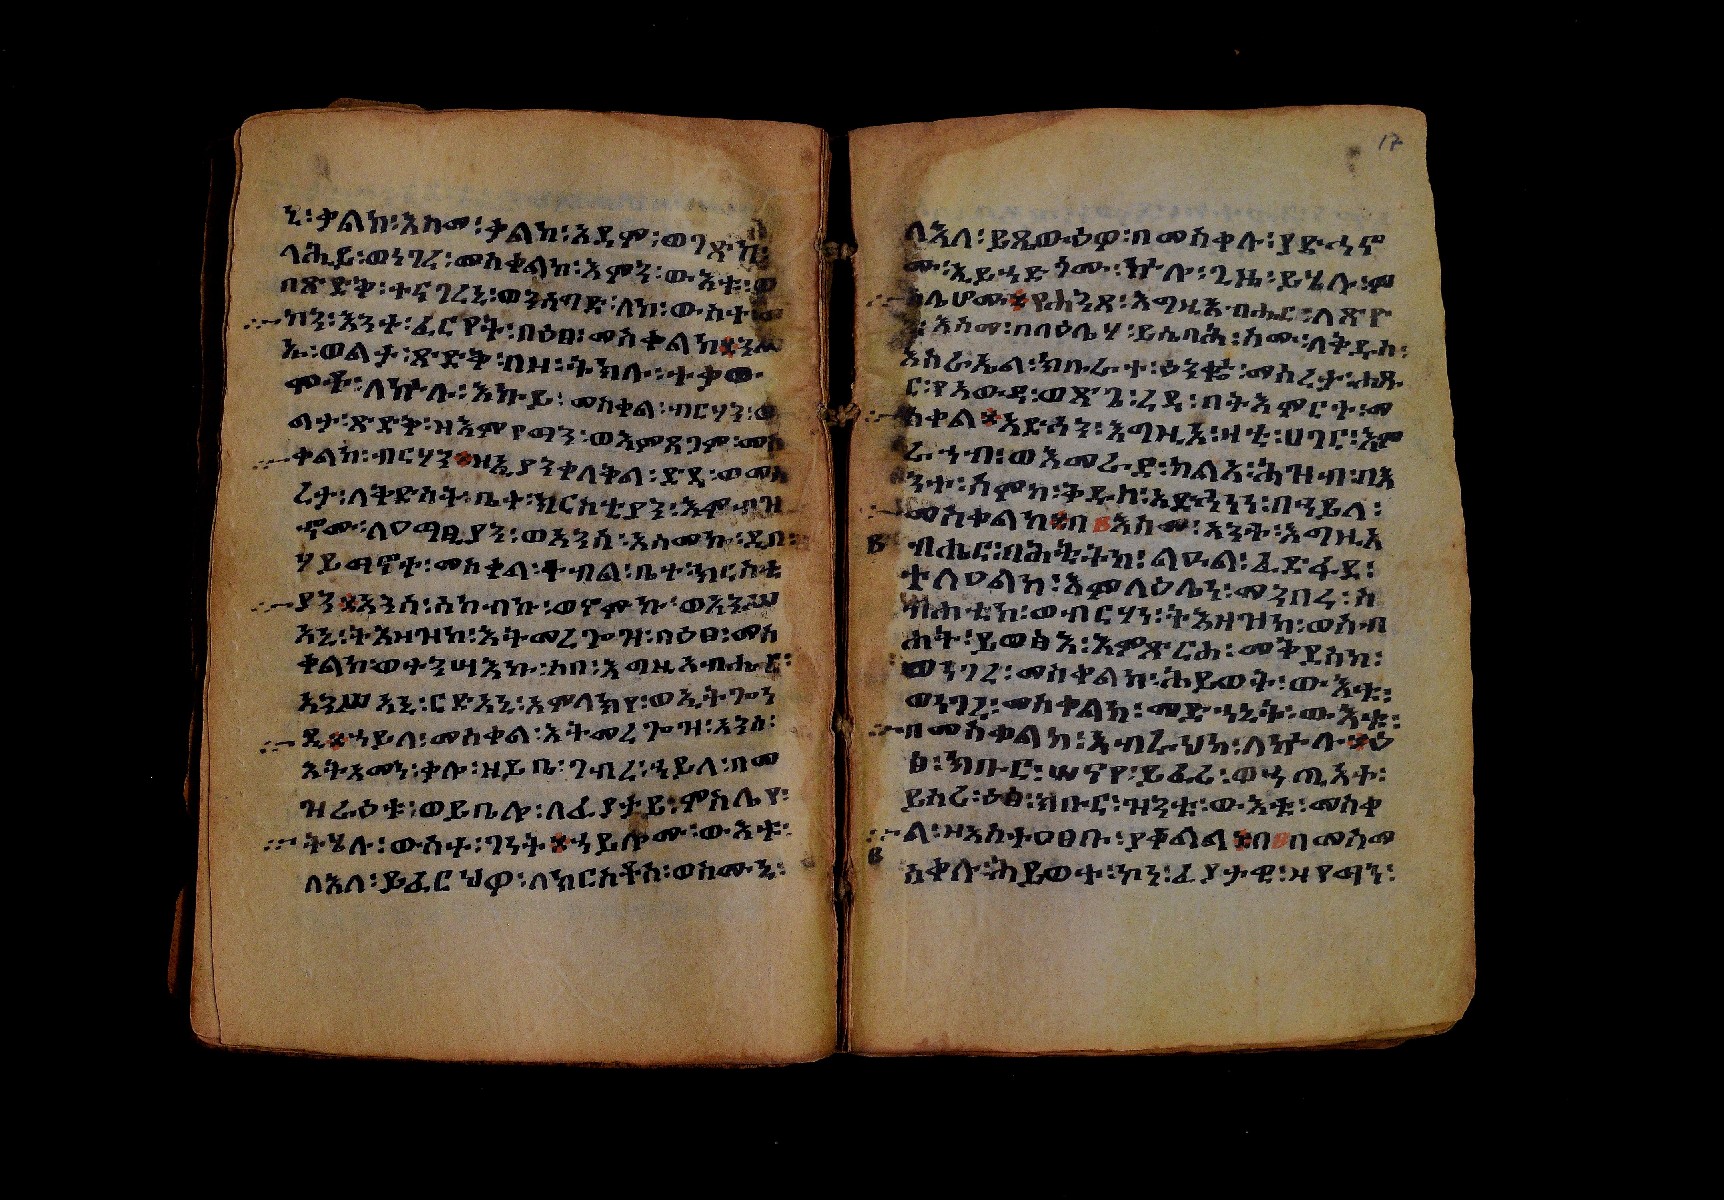 ኒ፡ቃልከ፡እስመ፡ቃልከ፡አዳም፡ወገጽከ፡
ላሒይ፡ወነገረ፡መስቀልከ፡እምኀ፡ውእቱ፡
በጽድቅ፡ተናገረኒ፡ወንሰግድ፡ለከ፡ውስተ
ዝኀ፡እንተ፡ፈርየት፡በዕፀ፡መስቀልከ
ኡ፡ወልታ፡ጽድቅ፡በዝ፡ትክሉ፡ተቃው
ሞቶ፡ለኵሉ፡እኩይ፡መስቀል፡ብርሃን፡ወ
ልታ፡ጽድቅ፡ዘእምየማን፡ወእምጸጋም፡መስ
ቀልከ፡ብርሃን፨ዘኢያንቀለቅል፡ደደ፡ወመሠ
ረታ፡ለቅድስት፡ቤተ፡ክርስቲያን፡እምብዝ
ኆሙ፡ለዐማፂያን፡ወአንሰ፡አአመኩ፡ደብ፡
ሃይማኖተ፡መስቀል፡ትብል፡ቤተ፡ክርስቲ
ያን፨አንሰ፡ሰከብኩ፡ወኖምኩ፡ወአንሥ
አኒ፡ትእዛዝከ፡እትመረጐዝ፡በዕፀ፡መስ
ቀልከ፡ወተንሣእኩ፡አበ፡እግዚአብሔር፡
አንሥአኒ፡ርድአኒ፡አምላክየ፡ወኢትጐን
ደ፨ኀይለ፡መስቀል፡እትመረጐዝ፡አንሰ፡
እትአመነ፡ቃሉ፡ዘይቤ፡ገብረ፡ኃይለ፡በመ
ዝራዕቱ፡ወይቤሎ፡ለፈያታይ፡ምስሌየ፡
ትሄሉ፡ውስተ፡ገነት፨ኀይሎሙ፡ውእቱ፡
ለእለ፡ይፈርህዎ፡ለክርስቶስ፡ወስሙኒ፡
17
ለእለ፡ይጼውዕዎ፡በመስቀሉ፡ያድኅኖ
ሙ፡ኢይኃድጎሙ፡ኵሎ፡ጊዜ፡ይሄሉ፡ም
ስሌሆሙ፨የሐንጽ፡እግዚአብሔር፡ለጽዮ
ን፡እስመ፡በበዕሌሃ፡ይሴባሕ፡ስሙ፡ለቅዱስ፡
እስራኤል፡ክቡራተ፡ዕንቈ፡መሰረታ፡ሐጹ
ር፡የአውዳ፡ወጽጌ፡ረዳ፡በትእምርተ፡መ
ስቀል፨አድኅን፡እግዚእ፡ዛቲ፡ሀገር፡እም
ረኀብ፡ወእመራድ፡ካልእ፡ሕዝብ፡በእ
ንተ፡ስምከ፡ቅዱስ፡አድኅነነ፡በኀይለ፡
መስቀልከ፨በ፪እስመ፡አንተ፡እግዚአ
ብሔር፡በሕቲትከ፡ልዑል፡ፈድፋደ፡
ተለዐልከ፡እምላዕሌነ፡መንበረ፡ስ
ብሐቲከ፡ወብርሃነ፡ትእዛዝከ፡ወስብ
ሐት፡ይወፅእ፡እምጽርሐ፡መቅደስከ፡
ወነገረ፡መስቀልከ፡ሕይወት፡ውእቱ፡
ወነገረ፡መስቀልከ፡መድኃኒት፡ውእቱ፡
በመስቀልከ፡አብራህከ፡ለኵሉ፨ዕ
ፀ፡ክቡር፡ሠናየ፡ይፈሪ፡ወኃጢአተ፡
ይሰሪ፡ዕፅ፡ክቡር፡ዝንቱ፡ውእቱ፡መስቀ
ል፡ዘአስተዐፀቡ፡ያቀልል፨በ፪በመስመ
ስቀሉ፡ሕይወተ፡ኮነ፡ፈያታዊ፡ዘየማን፡